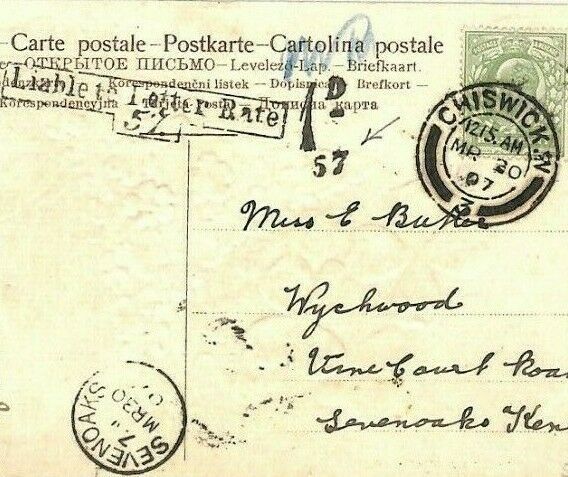 Carte postale - Postkarte - Cartolina postale
ОТКРЫТОЕ ПИСЬМО - Levelező-Lap. - Briefkaart.
Korespondenční listek - Dopisnica - Brefkort -
Korespondencyjna - Tarjeta postal - Дописна карта
Liable to Letter Rate
52
1D
57
CHISWICK.W
12.15.AM
MR 20
07
3
Miss E Butler
Wychwood
Vine Court Road
Sevenoaks Ken
SEVENOAKS
7
MR 20
07